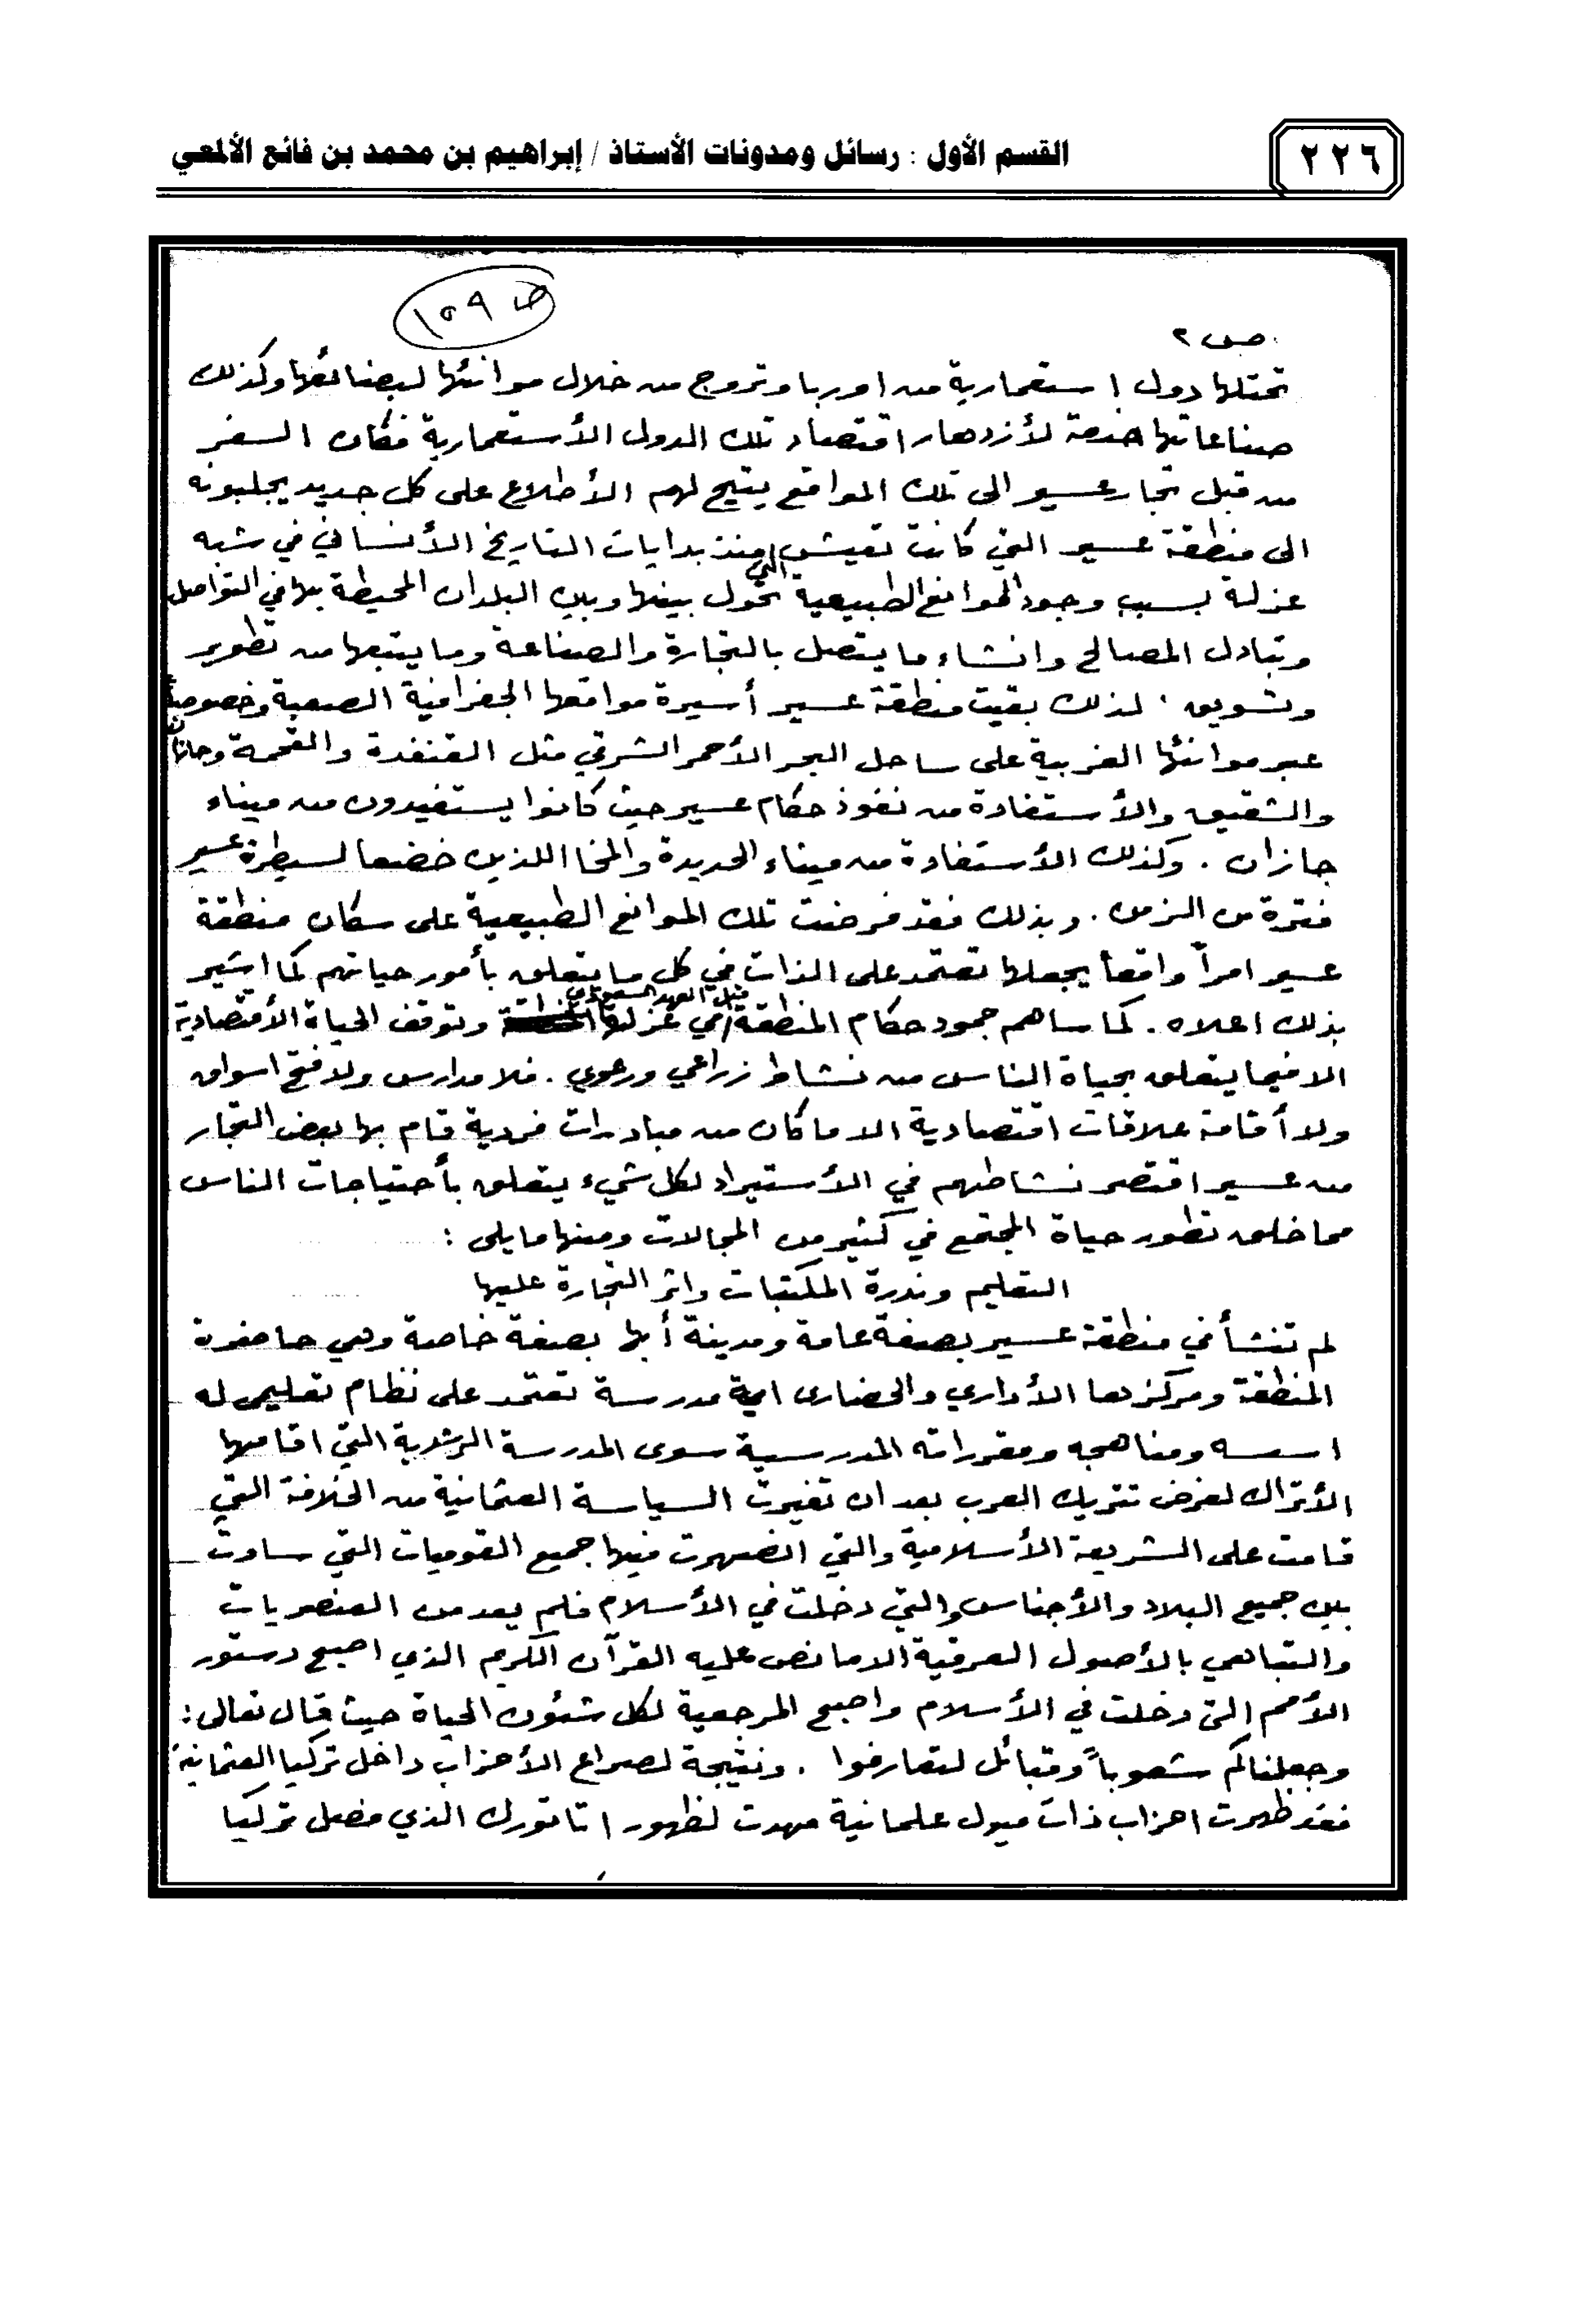 ٢٢٦
القسم الأول : رسائل ومدونات الأستاذ / إبراهيم بن محمد بن فائع الألمعي
ص ١٥٩
ص ٢
تحتلها دول استعمارية من اوربا وتروج من خلال موانئها لبضائعها وكذلك
صناعاتها خدمة لأزدهار اقتصاد تلك الدول الأستعمارية فكان السفر
من قبل تجار عسير الى تلك المواقع يتيح لهم الأطلاع على كل جديد يجلبونه
الى منطقة عسير التي كانت تعيش منذ بدايات التاريخ الأنساني في شبه
عزلة بسبب وجود الموانع الطبيعية التي تحول بينها وبين البلدان المحيطة بها في التواصل
وتبادل المصالح وانشاء ما يتصل بالتجارة والصناعة وما يتبعها من تطوير
وتسويق . لذلك بقيت منطقة عسير أسيرة مواقعها الجغرافية الصعبة وخصوصاً
عبر موانئها الغربية على ساحل البحر الأحمر الشرقي مثل القنفدة والقحمة وجازان
والشقيق والأستفادة من نفوذ حكام عسير حيث كانوا يستفيدون من ميناء
جازان . وكذلك الأستفادة من ميناء الحديدة والمخا اللذين خضعا لسيطرة عسير
فترة من الزمن . وبذلك فقد فرضت تلك الموانع الطبيعية على سكان منطقة
عسير امراً واقعاً يجعلها تعتمد على الذات في كل ما يتعلق بأمور حياتهم كما اشير
بذلك اعلاه . كما ساهم جمود حكام المنطقة قبل العهد السعودي في عزلتها وتوقف الحياة الأقتصادية
الا فيما يتعلق بحياة الناس من نشاط زراعي ورعوي . فلا مدارس ولا فتح اسواق
ولا أقامة علاقات اقتصادية الا ما كان من مبادرات فردية قام بها بعض التجار
من عسير اقتصر نشاطهم في الأستيراد لكل شيء يتعلق بأحتياجات الناس
مما خلق تطور حياة المجتمع في كثير من المجالات ومنها ما يلى :
التعليم وندرة المكتبات واثر التجارة عليها
لم تنشأ في منطقة عسير بصفة عامة ومدينة أبها بصفة خاصة وهي حاضرة
المنطقة ومركزها الأداري والحضارى اية مدرسة تعتمد على نظام تعليمى له
اسسه ومناهجه ومقرراته المدرسية سوى المدرسة الرشدية التي اقامها
الأتراك لغرض تتريك العرب بعد ان تغيرت السياسة العثمانية من الخلافة التي
قامت على الشريعة الأسلامية والتي انصهرت فيها جميع القوميات التي ساوت
بين جميع البلاد والأجناس والتي دخلت في الأسلام فلم يعد من العنصريات
والتباهي بالأصول العرقية الا ما نص عليه القرآن الكريم الذي اصبح دستور
الأمم التى دخلت في الأسلام واصبح المرجعية لكل شئون الحياة حيث قال تعالى :
وجعلناكم شعوباً وقبائل لتعارفوا . ونتيجة لصراع الأحزاب داخل تركيا العثمانية
فقد ظهرت احزاب ذات ميول علمانية مهدت لظهور اتاتورك الذي فصل تركيا